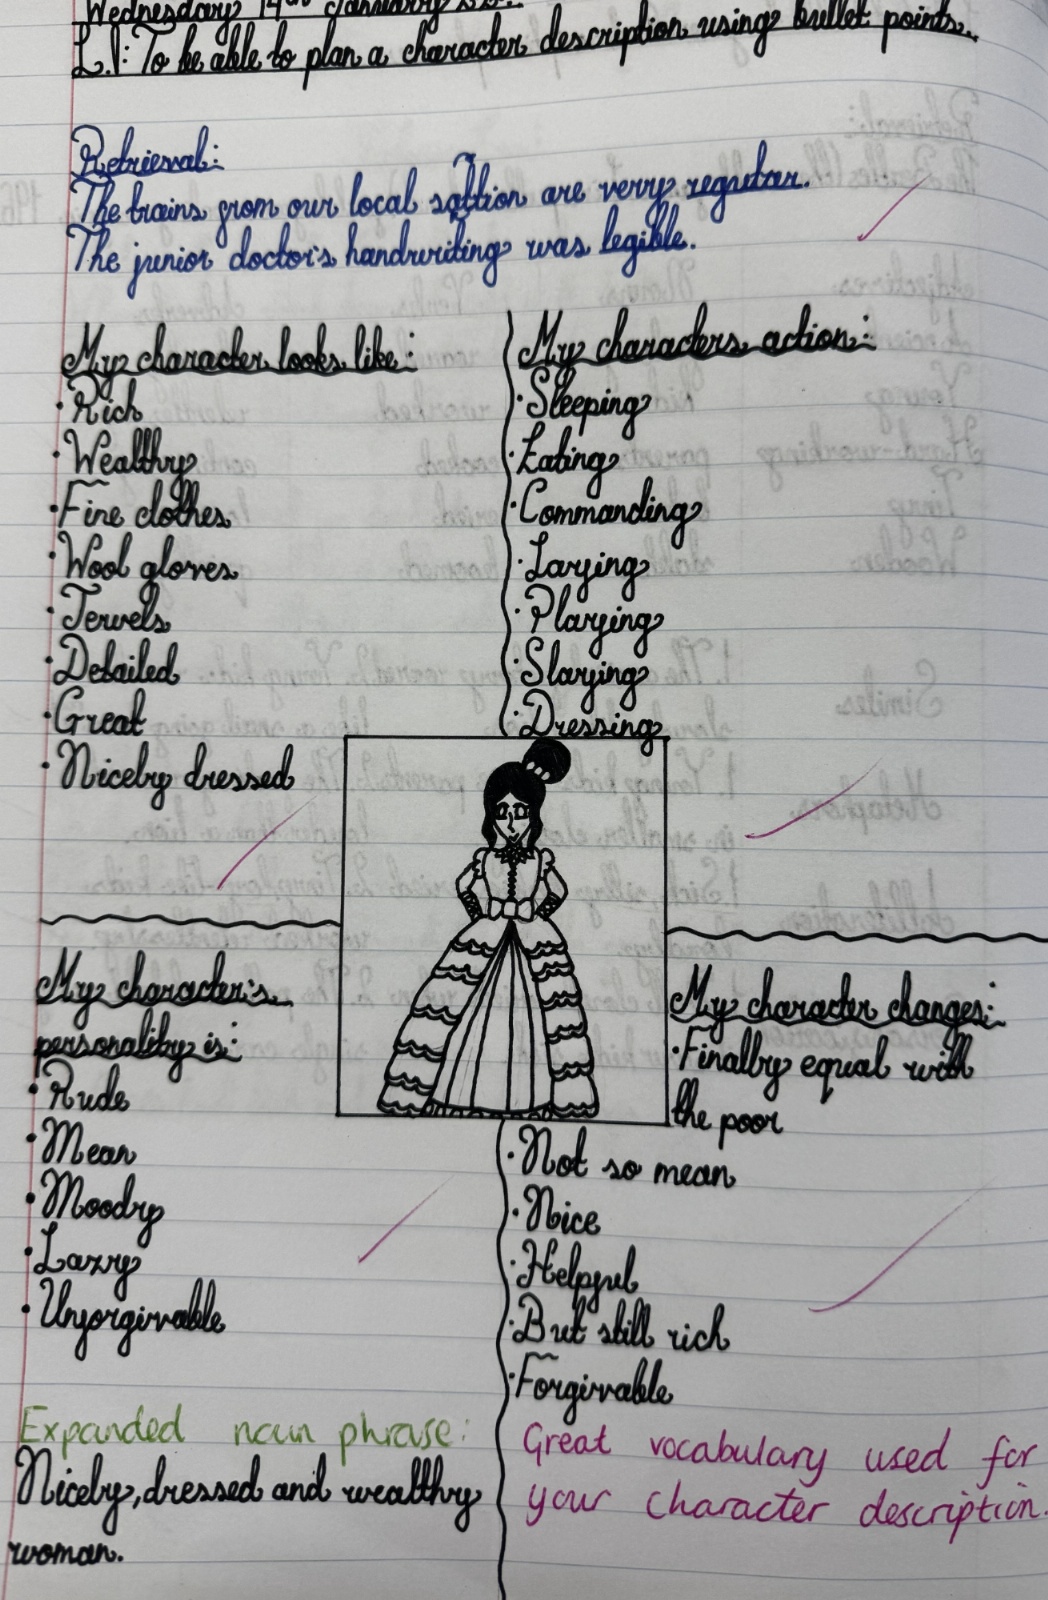 Wednesday 14th January
L.I: To be able to plan a character description using bullet points.
Retrieval:
The trains from our local sattion are very regular.
The junior doctor's handwriting was legible.
My character looks like:
· Rich
· Wealthy
· Fine clothes
· Wool gloves
· Jewels
· Detailed
· Great
· Nicely dressed
My characters action:
· Sleeping
· Eating
· Commanding
· Laying
· Playing
· Slaying
· Dressing
My character's
personality is:
· Rude
· Mean
· Moody
· Lazy
· Unforgivable
My character changes:
· Finally equal with
the poor
· Not so mean
· Nice
· Helpful
· But still rich
· Forgivable
Expanded noun phrase:
Nicely, dressed and wealthy
woman.
Great vocabulary used for
your character description.